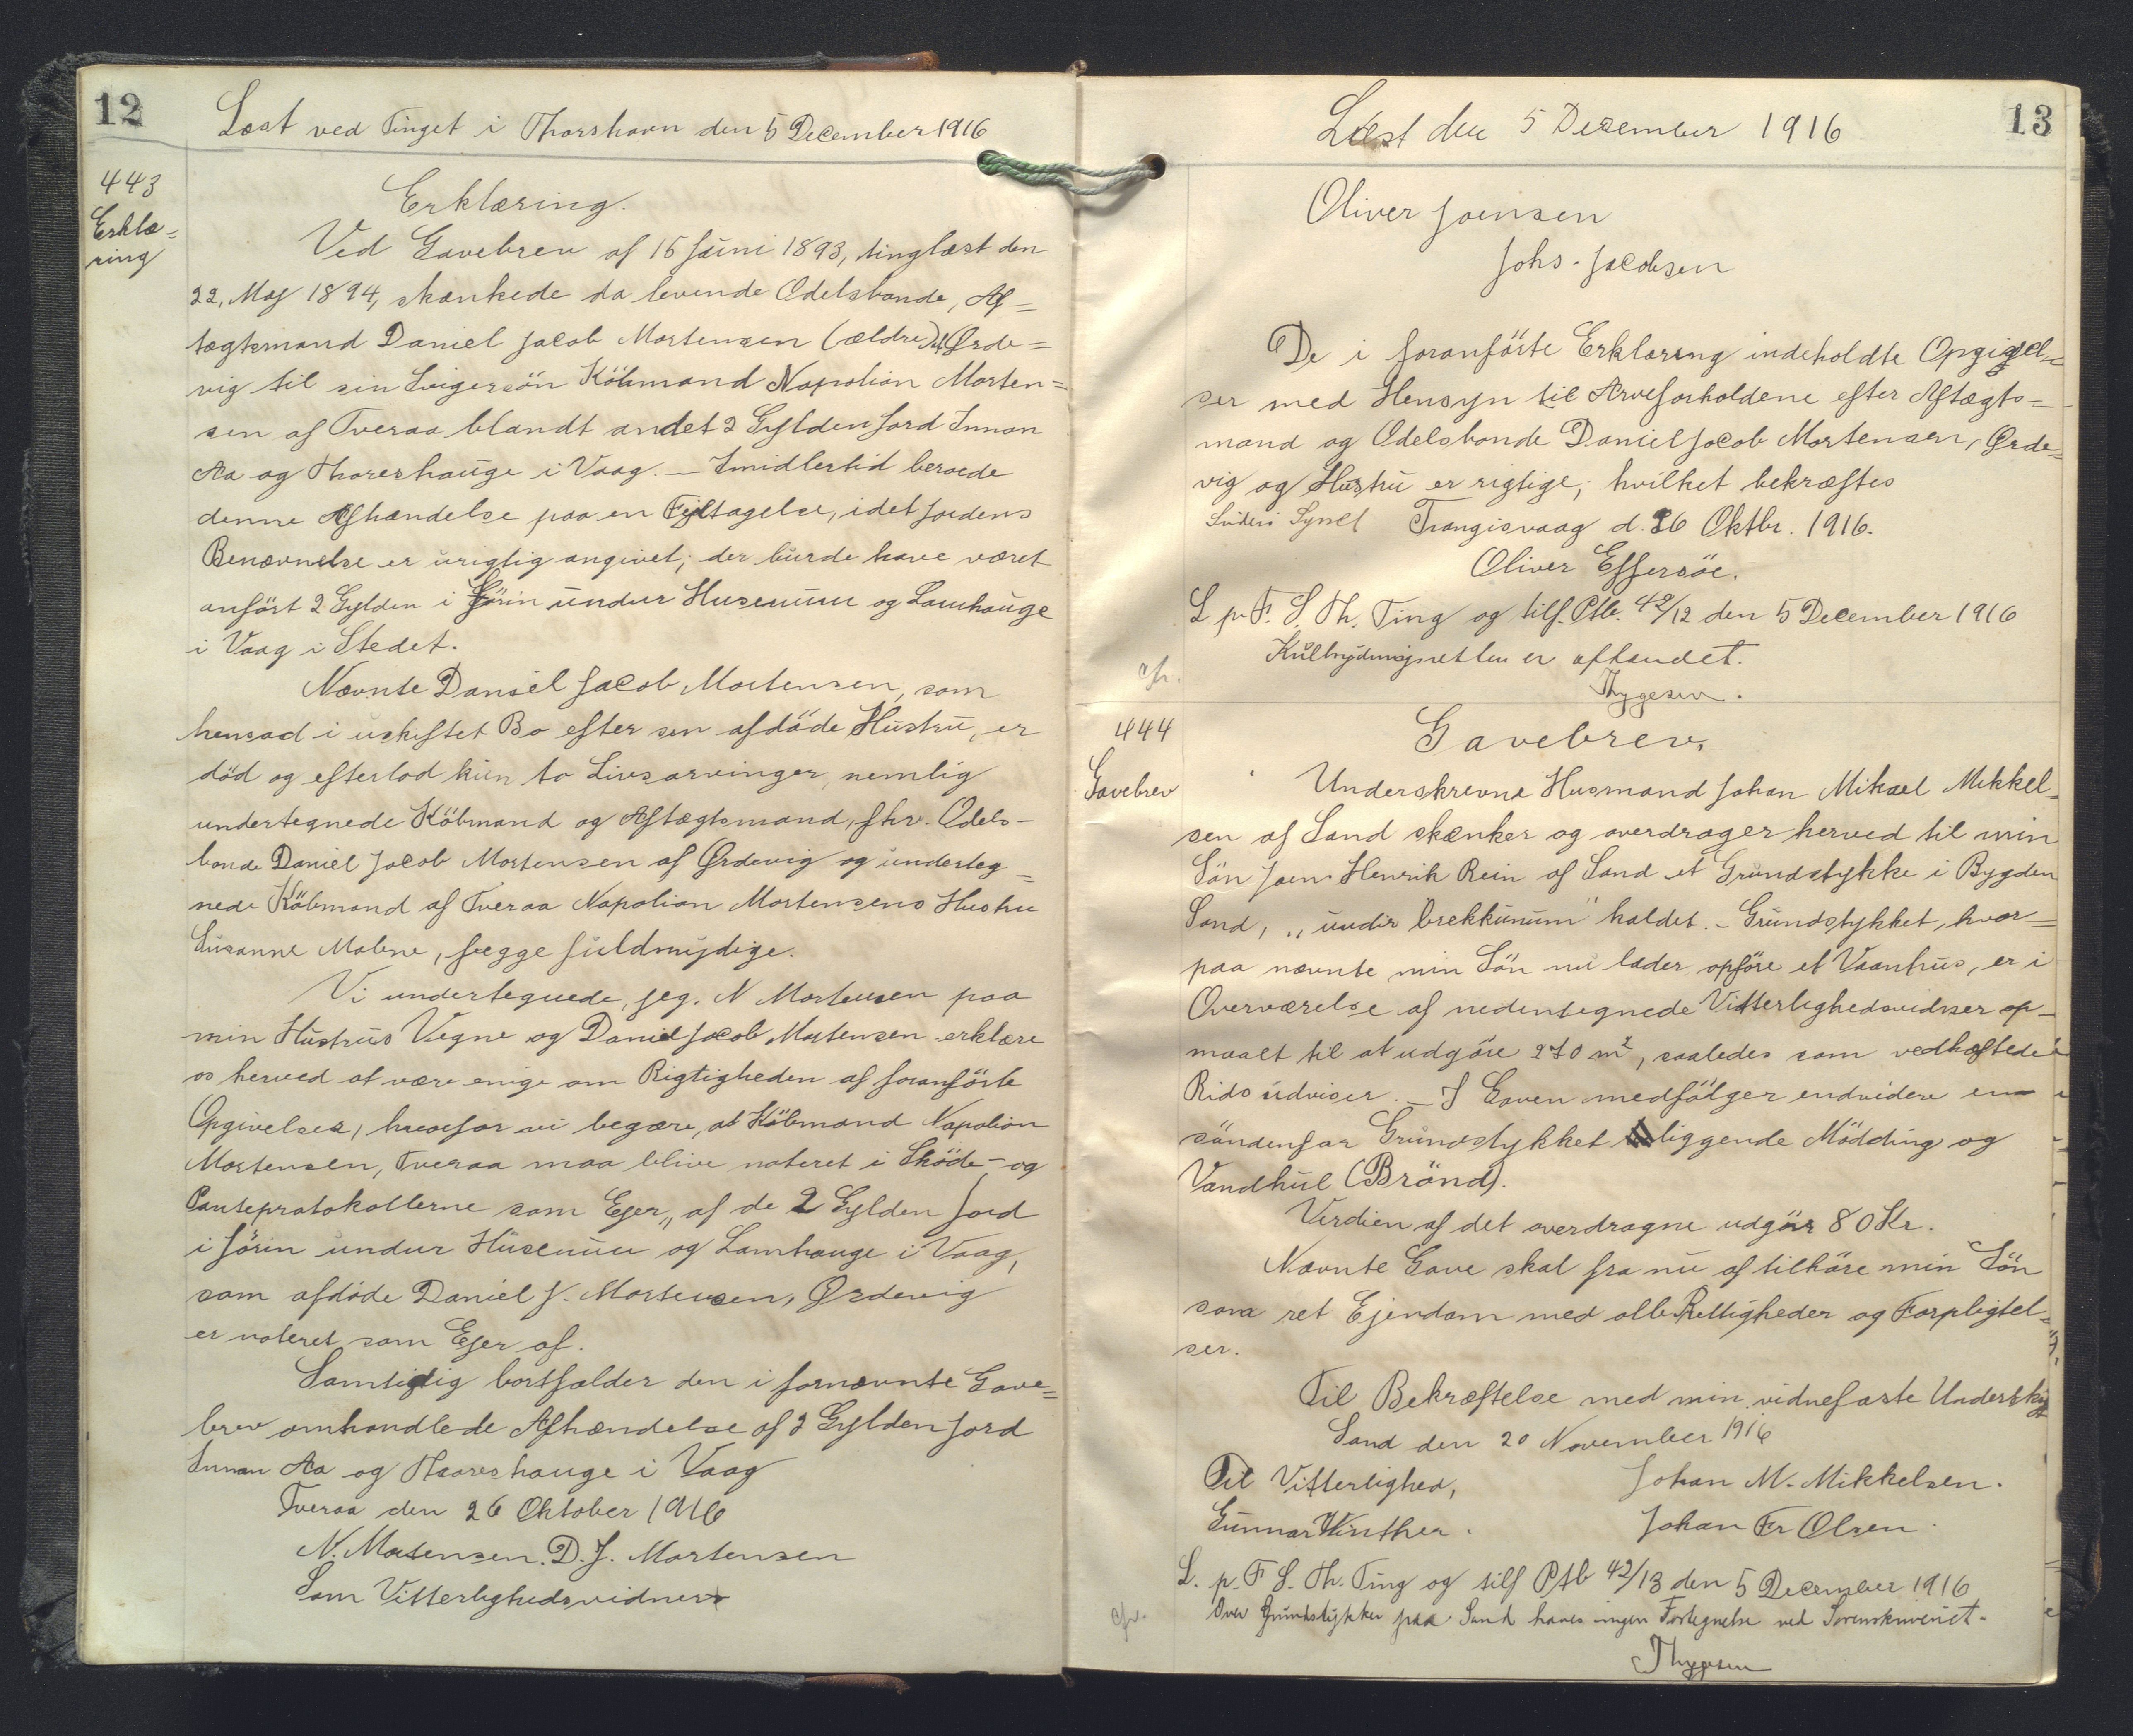 12
Læst ved Tinget i Thorshavn den 5 December 1916
443
Erklæ=
ring
Erklæring.
Ved Gavebrev af 15 Juni 1893, tinglæst den
22. Maj 1894, skænkede da levende Odelsbonde, Af=
tægtsmand Daniel Jacob Mortensen (ældre) af Ørde=
vig til sin Svigersön Köbmand Napolion Morten=
sen af Tveraa blandt andet 2 Gylden Jord Innan
Aa og Thoreshauge i Vaag. – Imidlertid beroede
denne Afhændelse paa en Fejltagelse, idet Jordens
Benævnelse er urigtig angivet; der burde have været
anfört 2 Gylden i Jörin undur Husenum og Lamhauge
i Vaag i Stedet.
Nævnte Daniel Jacob Mortensen, som
hensad i uskiftet Bo efter sin afdöde Hustru, er
död og efterlod kun to Livsarvinger, nemlig
undertegnede Köbmand og Aftægtsmand, fhv. Odels-
bonde Daniel Jacob Mortensen af Ørdevig og underteg=
nede Köbmand af Tveraa Napolion Mortensens Hustru
Susanne Malene, begge fuldmyndige.
Vi undertegnede, jeg. N Mortensen paa
min Hustrus Vegne og Daniel Jacob Mortensen erklære
os herved at være enige om Rigtigheden af foranförte
Opgivelser, hvorfor vi begære, at Köbmand Napolion
Mortensen, Tveraa maa blive noteret i Sköde- og
Panteprotokollerne som Ejer „ af de 2 Gylden Jord
i Jörin undur Husenum og Lamhauge i Vaag,
som afdöde Daniel J. Mortensen, Ørdevig
er noteret som Ejer af.
Samtidig bortfalder den i fornævnte Gave=
brev omhandlede Afhændelse af 2 Gylden Jord
Innan Aa og Thoreshauge i Vaag
Tveraa den 26 Oktober 1916
N. Mortensen. D. J. Mortensen
Som Vitterlighedsvidner
13
Læst den 5 Dezember 1916
Oliver Joensen
Johs. Jacobsen
De i foranförte Erklæring indeholdte Opgivel=
ser med Hensyn til Arveforholdene efter Aftægts=
mand og Odelsbonde Daniel Jacob Mortensen, Ørde=
vig og Hustru er rigtige; hvilket bekræftes
Suderø Syssel Trangisvaag d. 26 Oktbr. 1916.
Oliver Effersöe.
L p. F. S. Th. Ting og tilf. Ptb. 42/12 den 5 December 1916
er afsendet.
cfr.
Thygesen.
444
Gavebrev
Gavebrev.
Underskrevne Husmand Johan Mikael Mikkel=
sen af Sand skænker og overdrager herved til min
Sön Joen Henrik Rein af Sand et Grundstykke i Bygden
Sand, „undir brekkunum" kaldet. – Grundstykket, hvor=
paa nævnte min Sön nu lader opföre et Vaanhus, er i
Overværelse af nedentegnede Vitterlighedsvidner op-
maalt til at udgöre 270 m², saaledes som vedhæftede
Rids udviser. – I Gaven medfölger endvidere en
söndenfor Grundstykket liggende Mödding og
Vandhul (Brönd).
Verdien af det overdragne udgör 80 Kr.
Nævnte Gave skal fra nu af tilhöre min Sön
som ret Ejendom med alle Rettigheder og Forpligtel=
ser.
Til Bekræftelse med min vidnefaste Underskrift
Sand den 20 November 1916
Til Vitterlighed, Johan M. Mikkelsen.
Gunnar Winther. Johan Fr Olsen.
L. p. F S. Th. Ting og tilf Ptb 42/13 den 5 December 1916
cfr. Over Grundstykker paa Sand haves ingen Fortegnelse ved Sorenskriveriet.
Thygesen